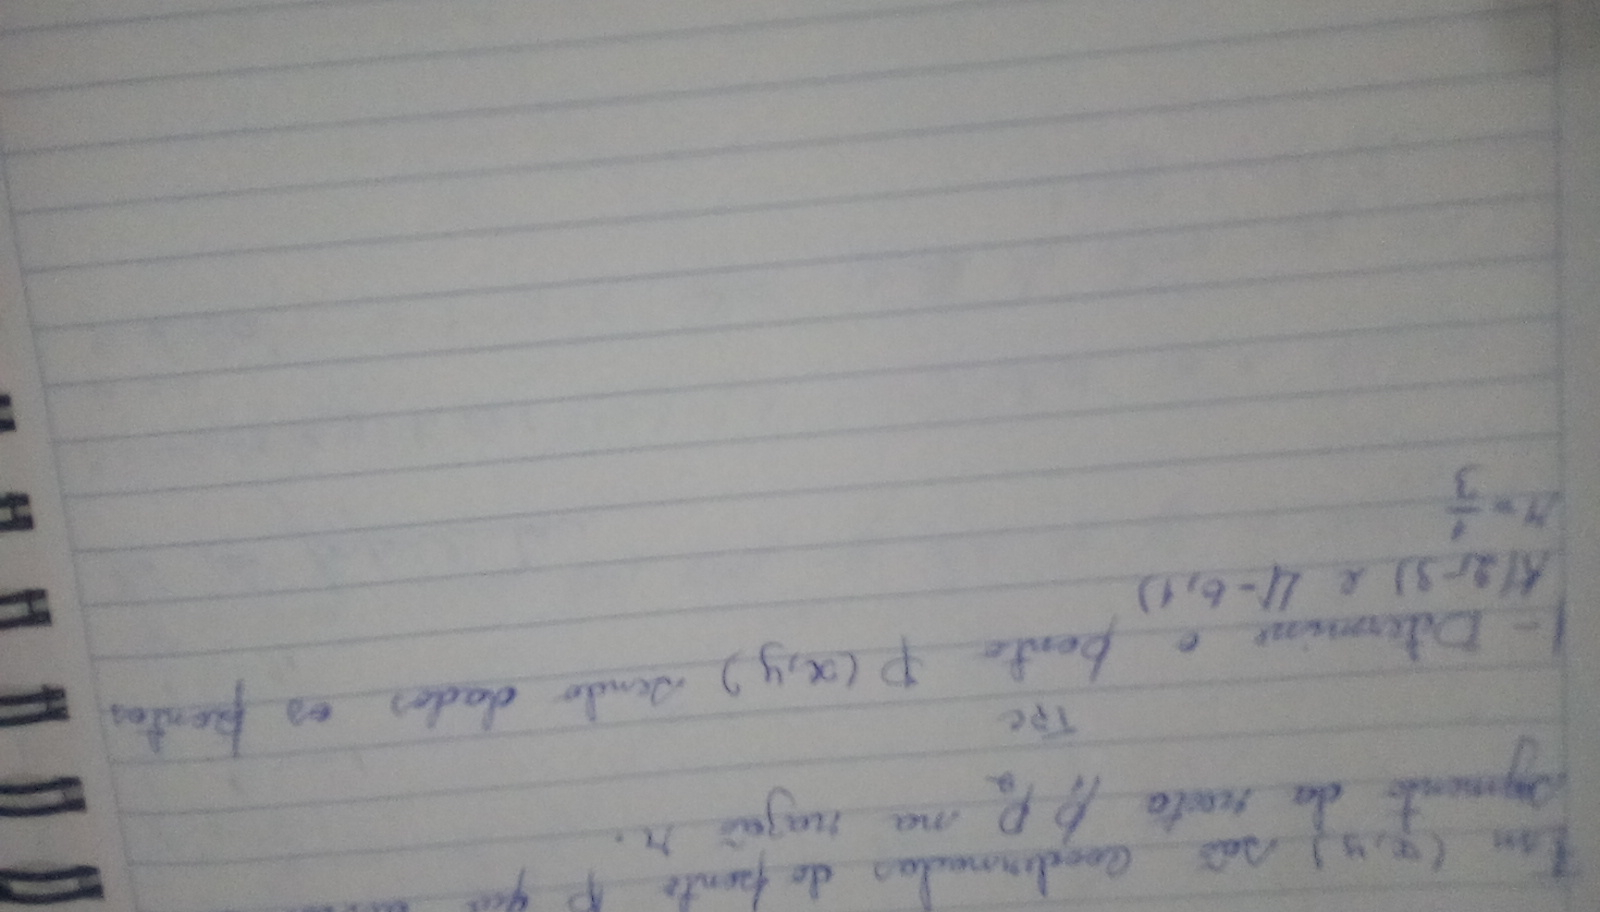 Em (x,y) são coordenadas do ponto P que
segmento da recta P₁ P₂ na razão r.
TPC
1- Determine o ponto P (x,y) sendo dados os pontos
A(2,-3) e (-6,1)
r = 1/3